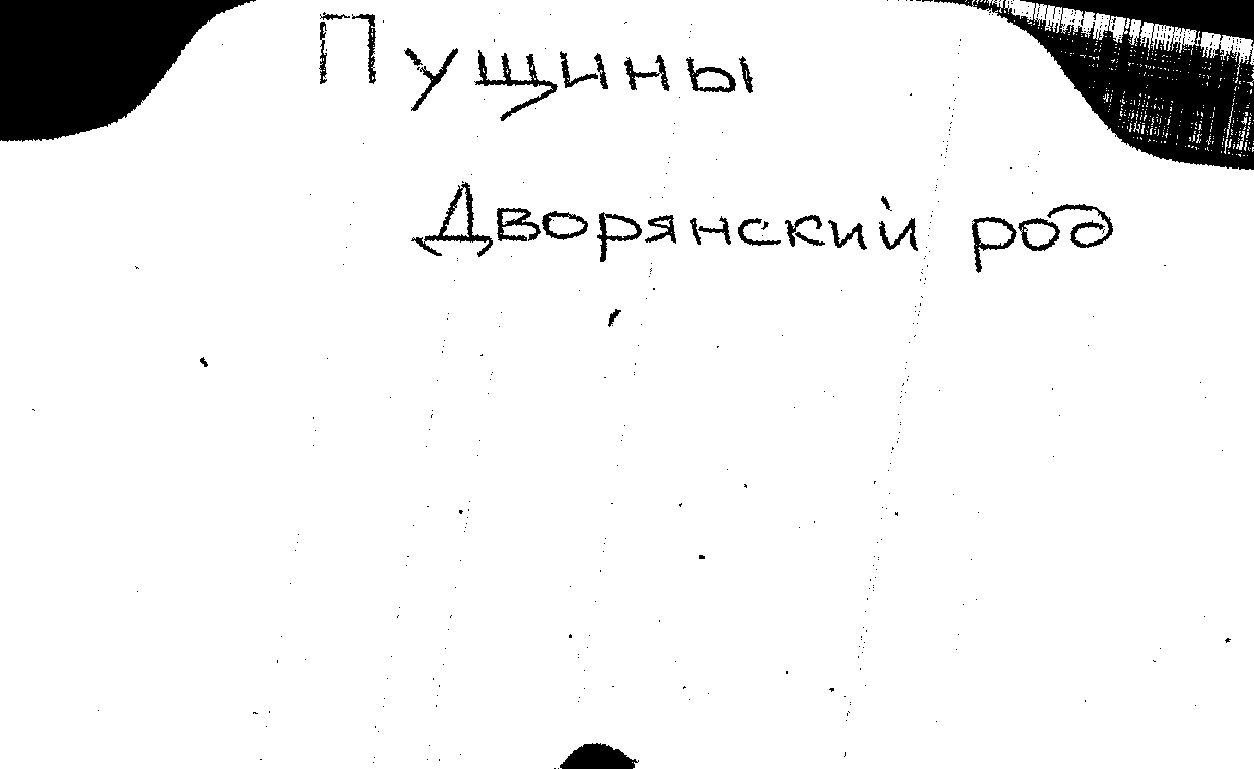 Пущины
Дворянский род